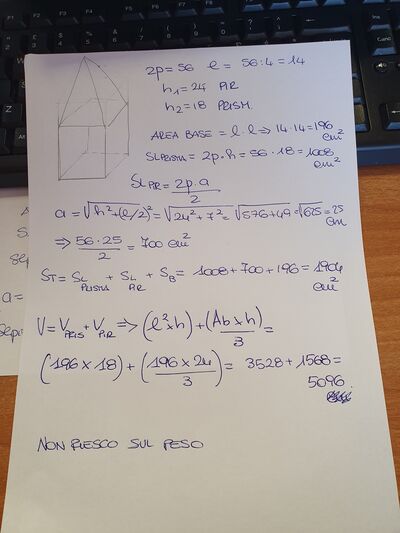 2p = 56 l = 56:4 = 14
h₁ = 24 PIR
h₂ = 18 PRISM.
AREA BASE = l·l ⇒ 14·14 = 196 cm²
SLPRISMA = 2p·h = 56·18 = 1008 cm²
SL PIR = 2p·a / 2
a = √h²+(l/2)² = √24²+7² = √576+49 = √625 = 25 cm
⇒ 56·25 / 2 = 700 cm²
ST = SL PRISMA + SL PIR + SB = 1008+700+196 = 1904 cm²
V = V PRIS + V PIR ⇒ (l²×h) + (Ab×h / 3) =
(196×18) + (196×24 / 3) = 3528+1568 =
5096
NON RIESCO SUL PESO